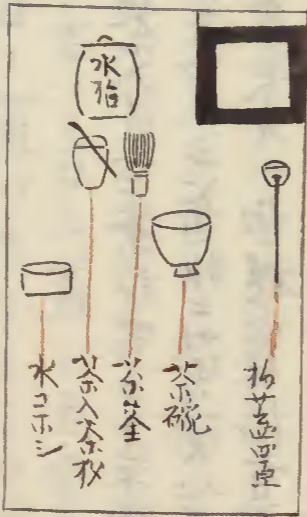 水指
杓蓋置
茶碗
茶筌
茶入茶杓
水コホシ